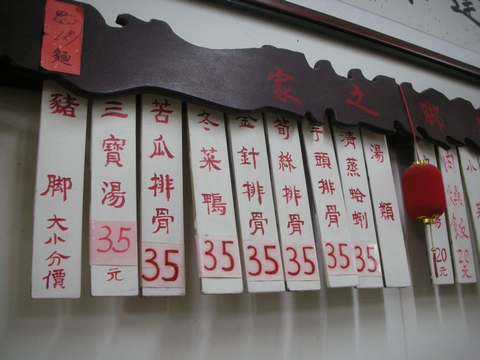 脚之家
肉燥飯 20元
20元
湯類
清蒸蛤蜊 35
芋頭排骨 35
筍絲排骨 35
金針排骨 35
冬菜鴨 35
苦瓜排骨 35
三寶湯 35元
豬脚 大小分價
麵